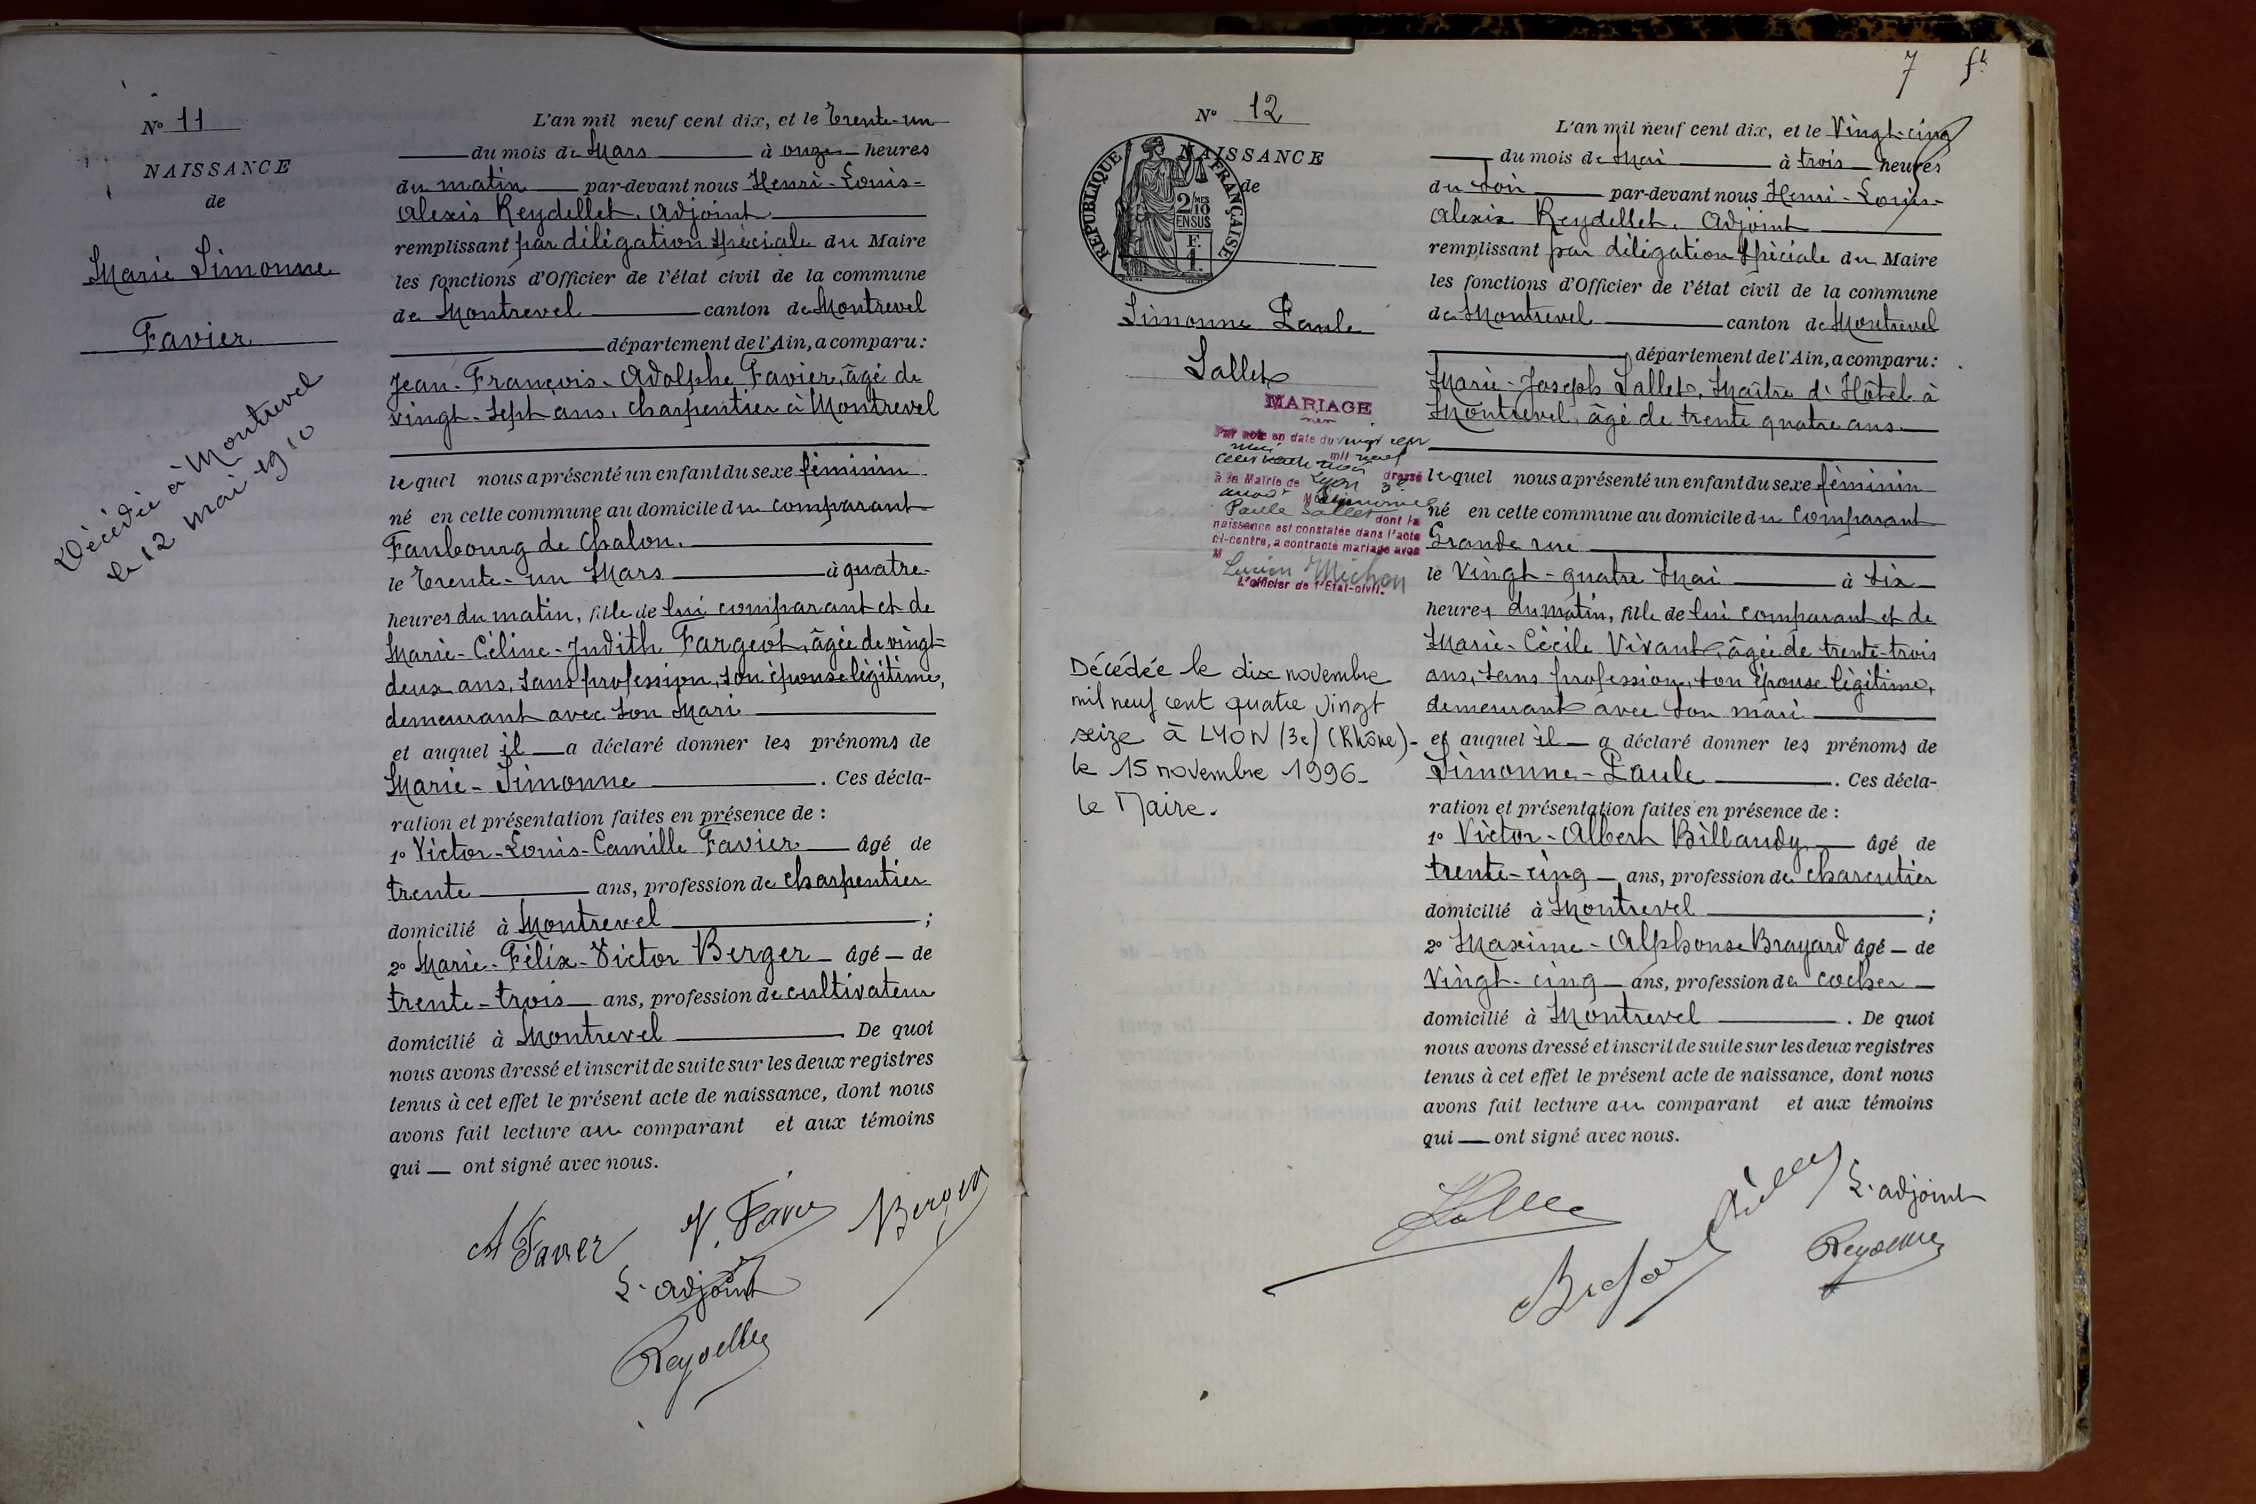 N° 11
NAISSANCE
de
Marie Simonne
Favier
Décédée à Montrevel
le 12 mai 1910
L'an mil neuf cent dix, et le Trente-un
du mois de Mars à onze heures
du matin par-devant nous Henri-Louis-
Alexis Reydellet, Adjoint
remplissant par délégation spéciale du Maire
les fonctions d'Officier de l'état civil de la commune
de Montrevel canton de Montrevel
département de l'Ain, a comparu :
Jean-François-Adolphe Favier, âgé de
vingt-sept ans, charpentier à Montrevel
lequel nous a présenté un enfant du sexe féminin
né en cette commune au domicile du comparant
Faubourg de Chalon.
le Trente-un Mars à quatre-
heures du matin, fille de lui comparant et de
Marie-Céline-Judith Fargeot, âgée de vingt-
deux ans, sans profession, son épouse légitime,
demeurant avec son mari
et auquel il a déclaré donner les prénoms de
Marie-Simonne . Ces décla-
ration et présentation faites en présence de :
1° Victor-Louis-Camille Favier âgé de
trente ans, profession de charpentier
domicilié à Montrevel ;
2° Marie-Félix-Victor Berger âgé de
trente-trois ans, profession de cultivateur
domicilié à Montrevel De quoi
nous avons dressé et inscrit de suite sur les deux registres
tenus à cet effet le présent acte de naissance, dont nous
avons fait lecture au comparant et aux témoins
qui ont signé avec nous.
A Favier V. Favier Berger
L'adjoint
Reydellet
7
N° 12
NAISSANCE
de
REPUBLIQUE FRANÇAISE
2/10 MES
EN SUS
F.
1.
Simonne Paule
Sallet
MARIAGE
Par acte en date du vingt sept
mai mil neuf
cent trente trois dressé
à la Mairie de Lyon 3e
Simonne
Paule Sallet dont la
naissance est constatée dans l'acte
ci-contre, a contracté mariage avec
M Lucien Michon
L'officier de l'Etat-civil.
Décédée le dix novembre
mil neuf cent quatre vingt
seize à LYON (3e) (Rhône)-
le 15 novembre 1996-
Le Maire.
L'an mil neuf cent dix, et le Vingt-cinq
du mois de Mai à trois heures
du soir par-devant nous Henri-Louis-
Alexis Reydellet, Adjoint
remplissant par délégation spéciale du Maire
les fonctions d'Officier de l'état civil de la commune
de Montrevel canton de Montrevel
département de l'Ain, a comparu :
Marie-Joseph Sallet, Maître d'Hôtel à
Montrevel, âgé de trente quatre ans
lequel nous a présenté un enfant du sexe féminin
né en cette commune au domicile du comparant
Grande rue
le Vingt-quatre Mai à six
heures du matin, fille de lui comparant et de
Marie-Cécile Vivant, âgée de trente-trois
ans, sans profession, son épouse légitime,
demeurant avec son mari
et auquel il a déclaré donner les prénoms de
Simonne-Paule . Ces décla-
ration et présentation faites en présence de :
1° Victor-Albert Billaudy âgé de
trente-cinq ans, profession de charcutier
domicilié à Montrevel ;
2° Maxime-Alphonse Brayard âgé de
Vingt-cinq ans, profession de cocher
domicilié à Montrevel . De quoi
nous avons dressé et inscrit de suite sur les deux registres
tenus à cet effet le présent acte de naissance, dont nous
avons fait lecture au comparant et aux témoins
qui ont signé avec nous.
L'adjoint
Reydellet